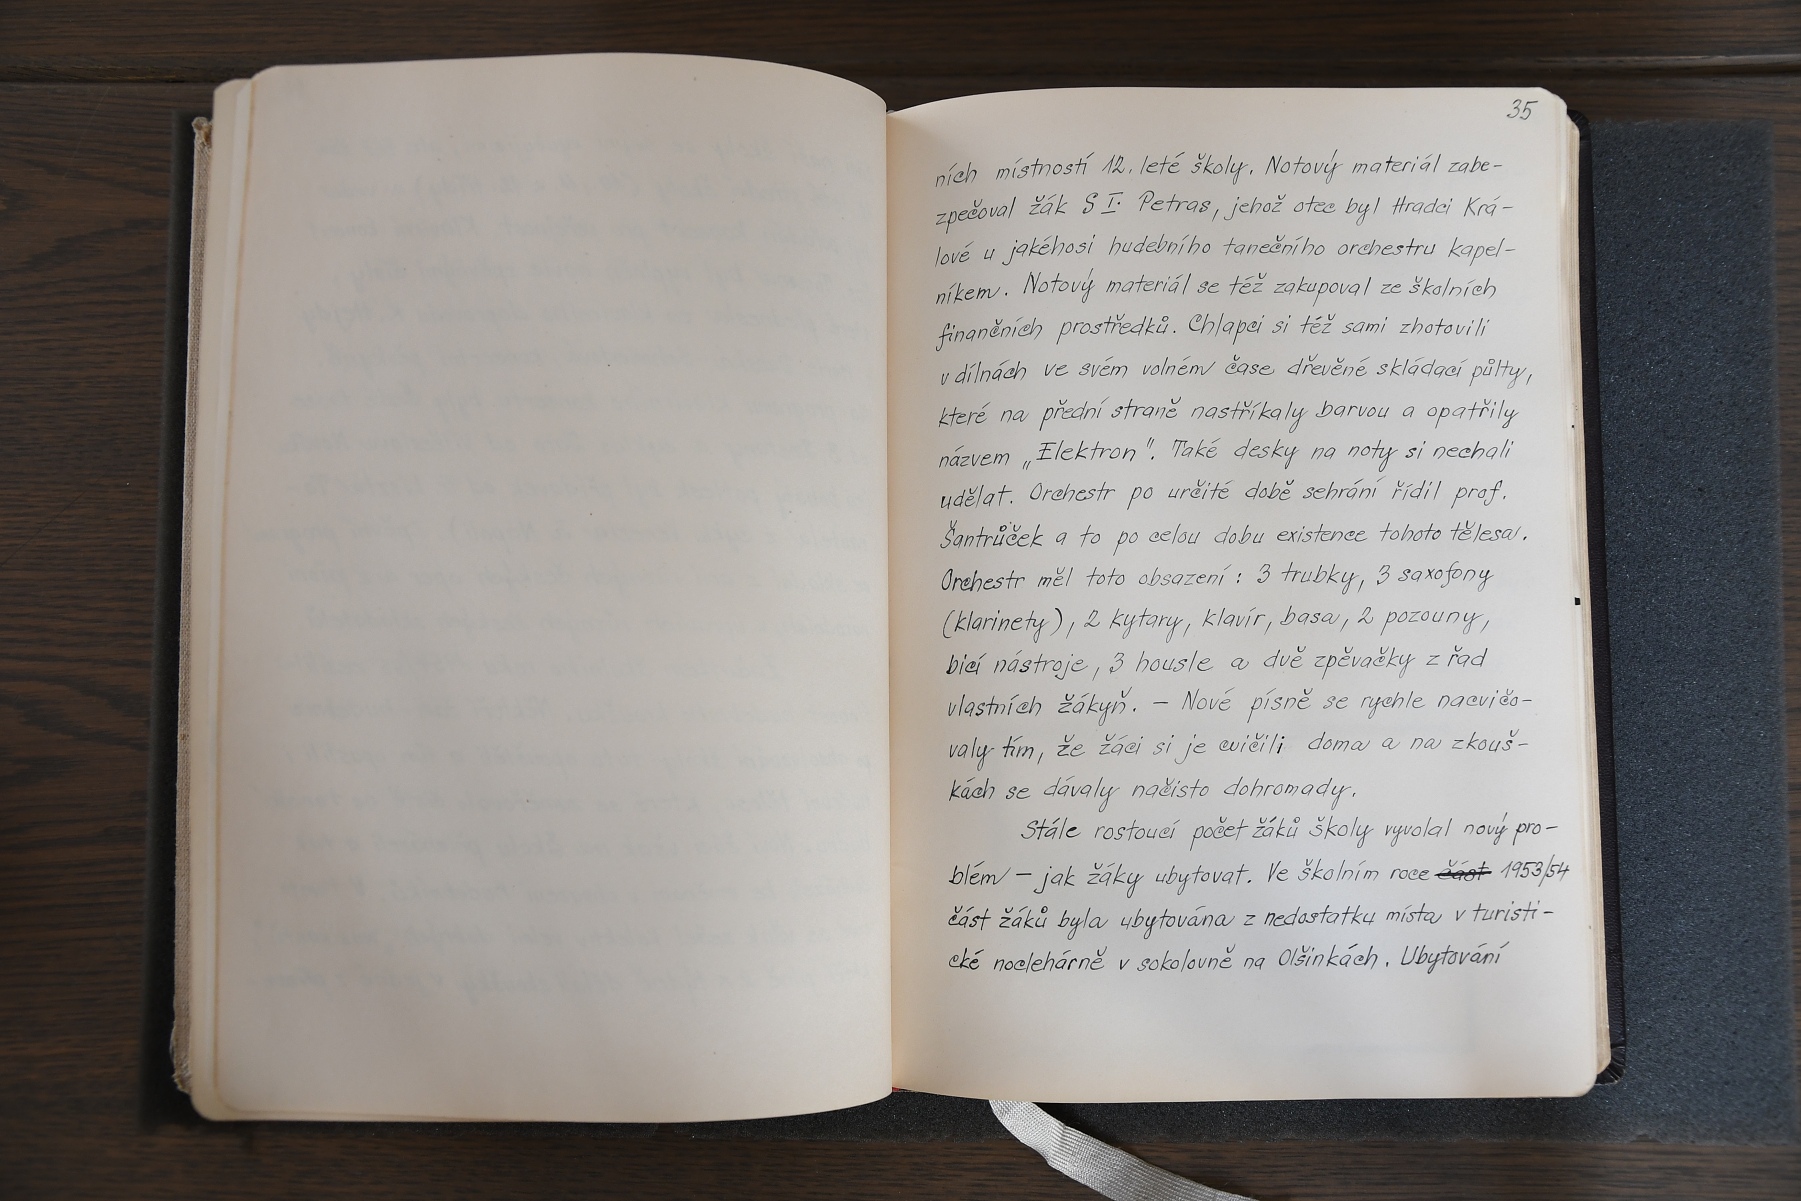 35
ních místností 12. leté školy. Notový materiál zabe-
zpečoval žák S I. Petras, jehož otec byl Hradci Krá-
lové u jakéhosi hudebního tanečního orchestru kapel-
níkem. Notový materiál se též zakupoval ze školních
finančních prostředků. Chlapci si též sami zhotovili
v dílnách ve svém volném čase dřevěné skládací půlty,
které na přední straně nastříkaly barvou a opatřily
názvem „Elektron". Také desky na noty si nechali
udělat. Orchestr po určité době sehrání řídil prof.
Šantrůček a to po celou dobu existence tohoto tělesa.
Orchestr měl toto obsazení : 3 trubky, 3 saxofony
(klarinety), 2 kytary, klavír, basa, 2 pozouny,
bicí nástroje, 3 housle a dvě zpěvačky z řad
vlastních žákyň. – Nové písně se rychle nacvičo-
valy tím, že žáci si je cvičili doma a na zkouš-
kách se dávaly načisto dohromady.
Stále rostoucí počet žáků školy vyvolal nový pro-
blém – jak žáky ubytovat. Ve školním roce část 1953/54
část žáků byla ubytována z nedostatku místa v turisti-
cké noclehárně v sokolovně na Olšinkách. Ubytování